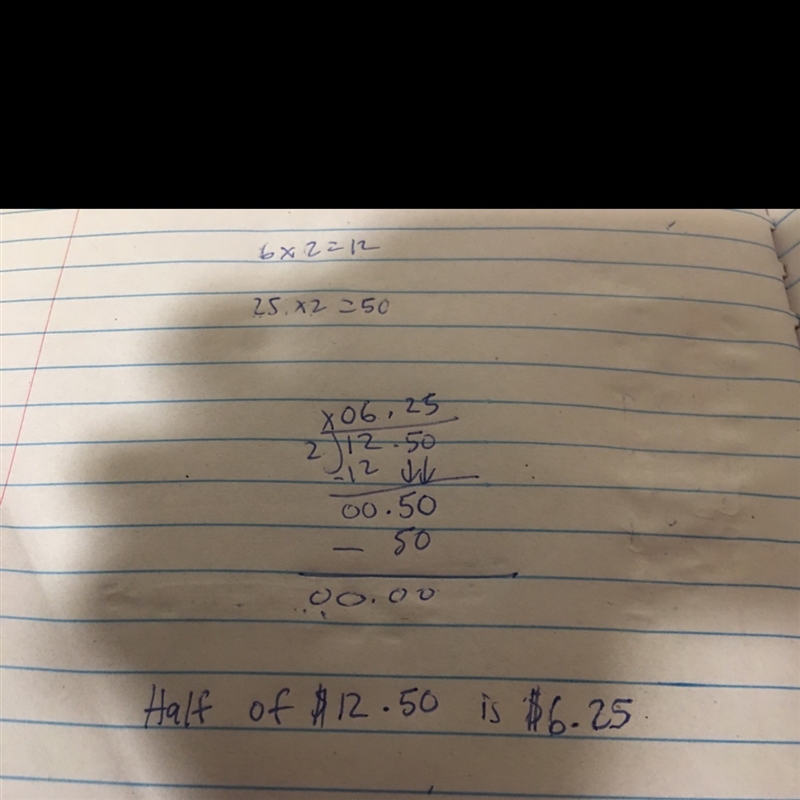 6 x 2 = 12
25. x2 = 50
x06.25
2)12.50
-12 ↓↓
00.50
- 50
00.00
Half of $12.50 is $6.25